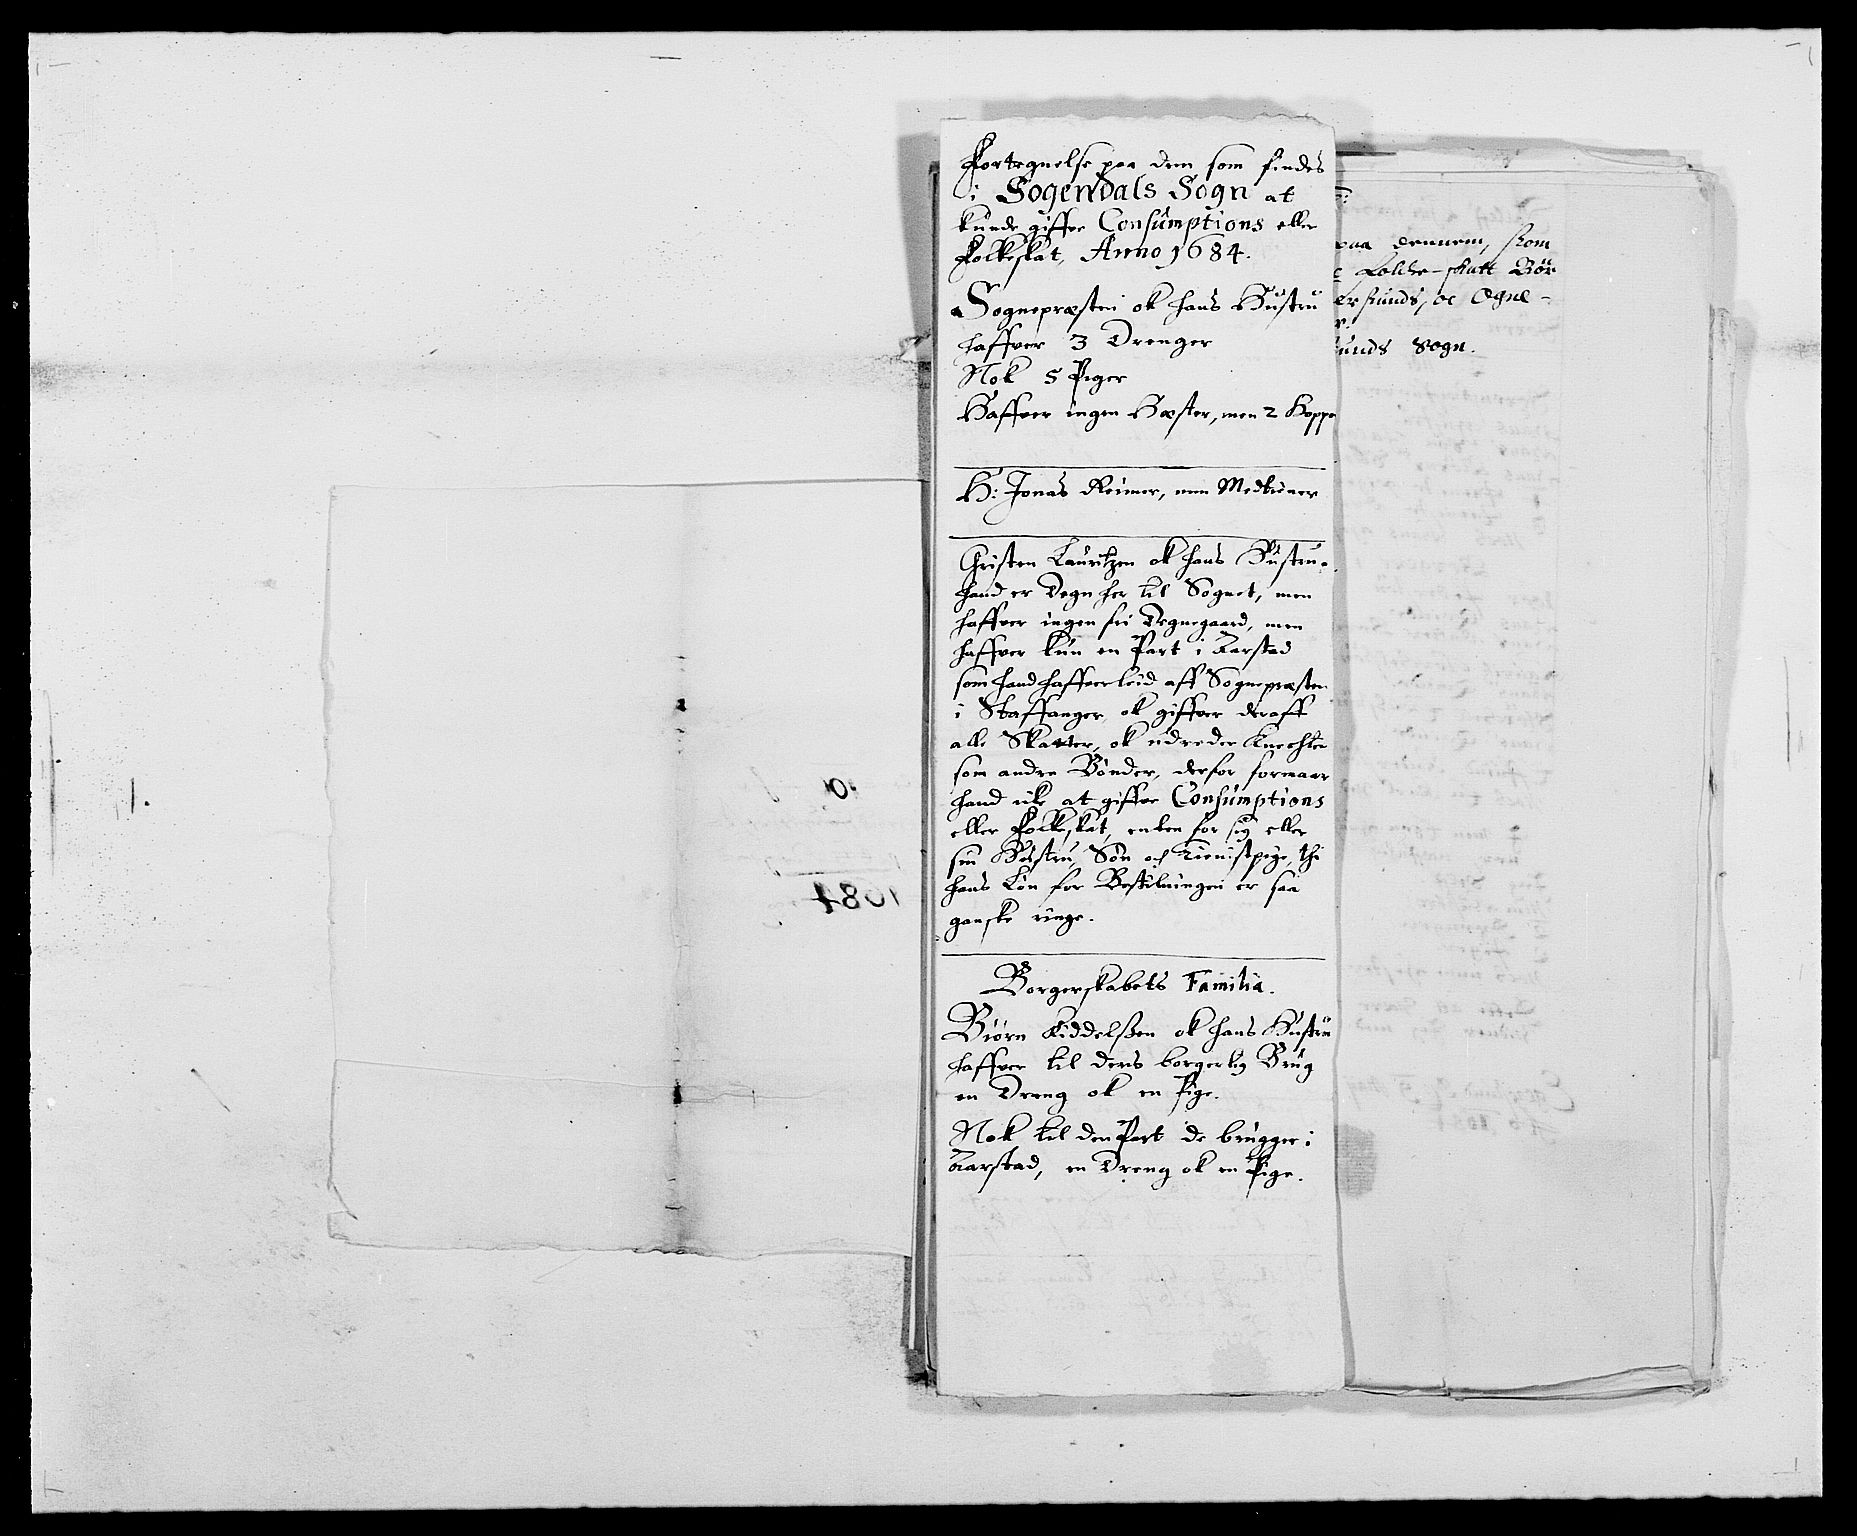 Fortegnelse paa dem som findes
i Sogendals Sogn at
kunde giffve Consumptions eller
Folkeskat, Anno 1684.
Sognepræsten ok hans Hustru
haffver 3 Drenger
Nok 5 Piger
Haffver ingen Hæster, men 2 Hopper
H: Jonas Reimer, min Medtiener
Christen Lauritzen ok hans Hustru,
hand er Degn her til Sognet, men
haffver ingen fri Degnegaard, men
haffver kun en Part i Aarstad
som hand haffver leid aff Sognepræsten
i Staffanger, ok giffver deraff
alle Skatter, ok udreder Knechter
som andre Bønder, derfor formaar
hand ike at giffve Consumptions
eller Folkeskat, enten for sig eller
sin Hustru, Søn och Tienistpige, thi
hans Løn for Bestilningen er saa
ganske ringe.
Borgerskabets Familia.
Biørn Kiddelßen ok hans Hustru
haffver til deris borgerlig Brug
en Dreng ok en Pige.
Nok til den Part de brugger i
Aarstad, en Dreng ok en Pige.
paa dennem, som
Folche-skatt Bør
ersunds, oc Ogne-
unds Sogn.
1.
1684